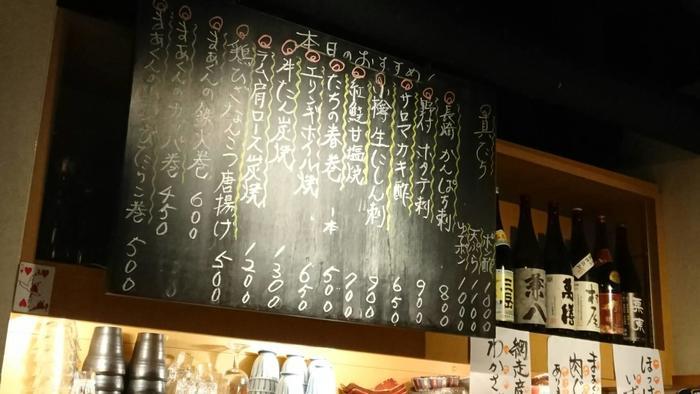 本日のおすすめ!
真だち
ポン酢 1000
天ぷら 1100
長崎 かんぱち刺 800
野付 ホタテ刺 900
サロマカキ酢 650
小樽 生にしん刺 900
紅鮭甘塩焼 700
たちの春巻 一本 500
エリンギホイル焼 650
牛たん炭焼 1300
ラム肩ロース炭焼 1200
鶏ひざなんこつ唐揚げ 500
まあんの鉄火巻 600
まあんのカッパ巻 450
500
三岳
兼八
萬膳
村尾
わかさ
網走産
肉じ